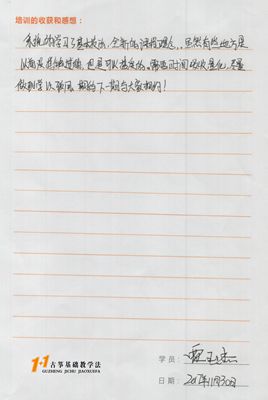 培训的收获和感想：
系统的学习了基本技法，全新的课程理念，虽然有些地方是
以前没接触过的，但是可以肯定的。需要时间的消化，尽量
做到学以致用。期待下一期与大家相约！
1+1古筝基础教学法
GUZHENG JICHU JIAOXUEFA
学员：
日期：2017年11月30日